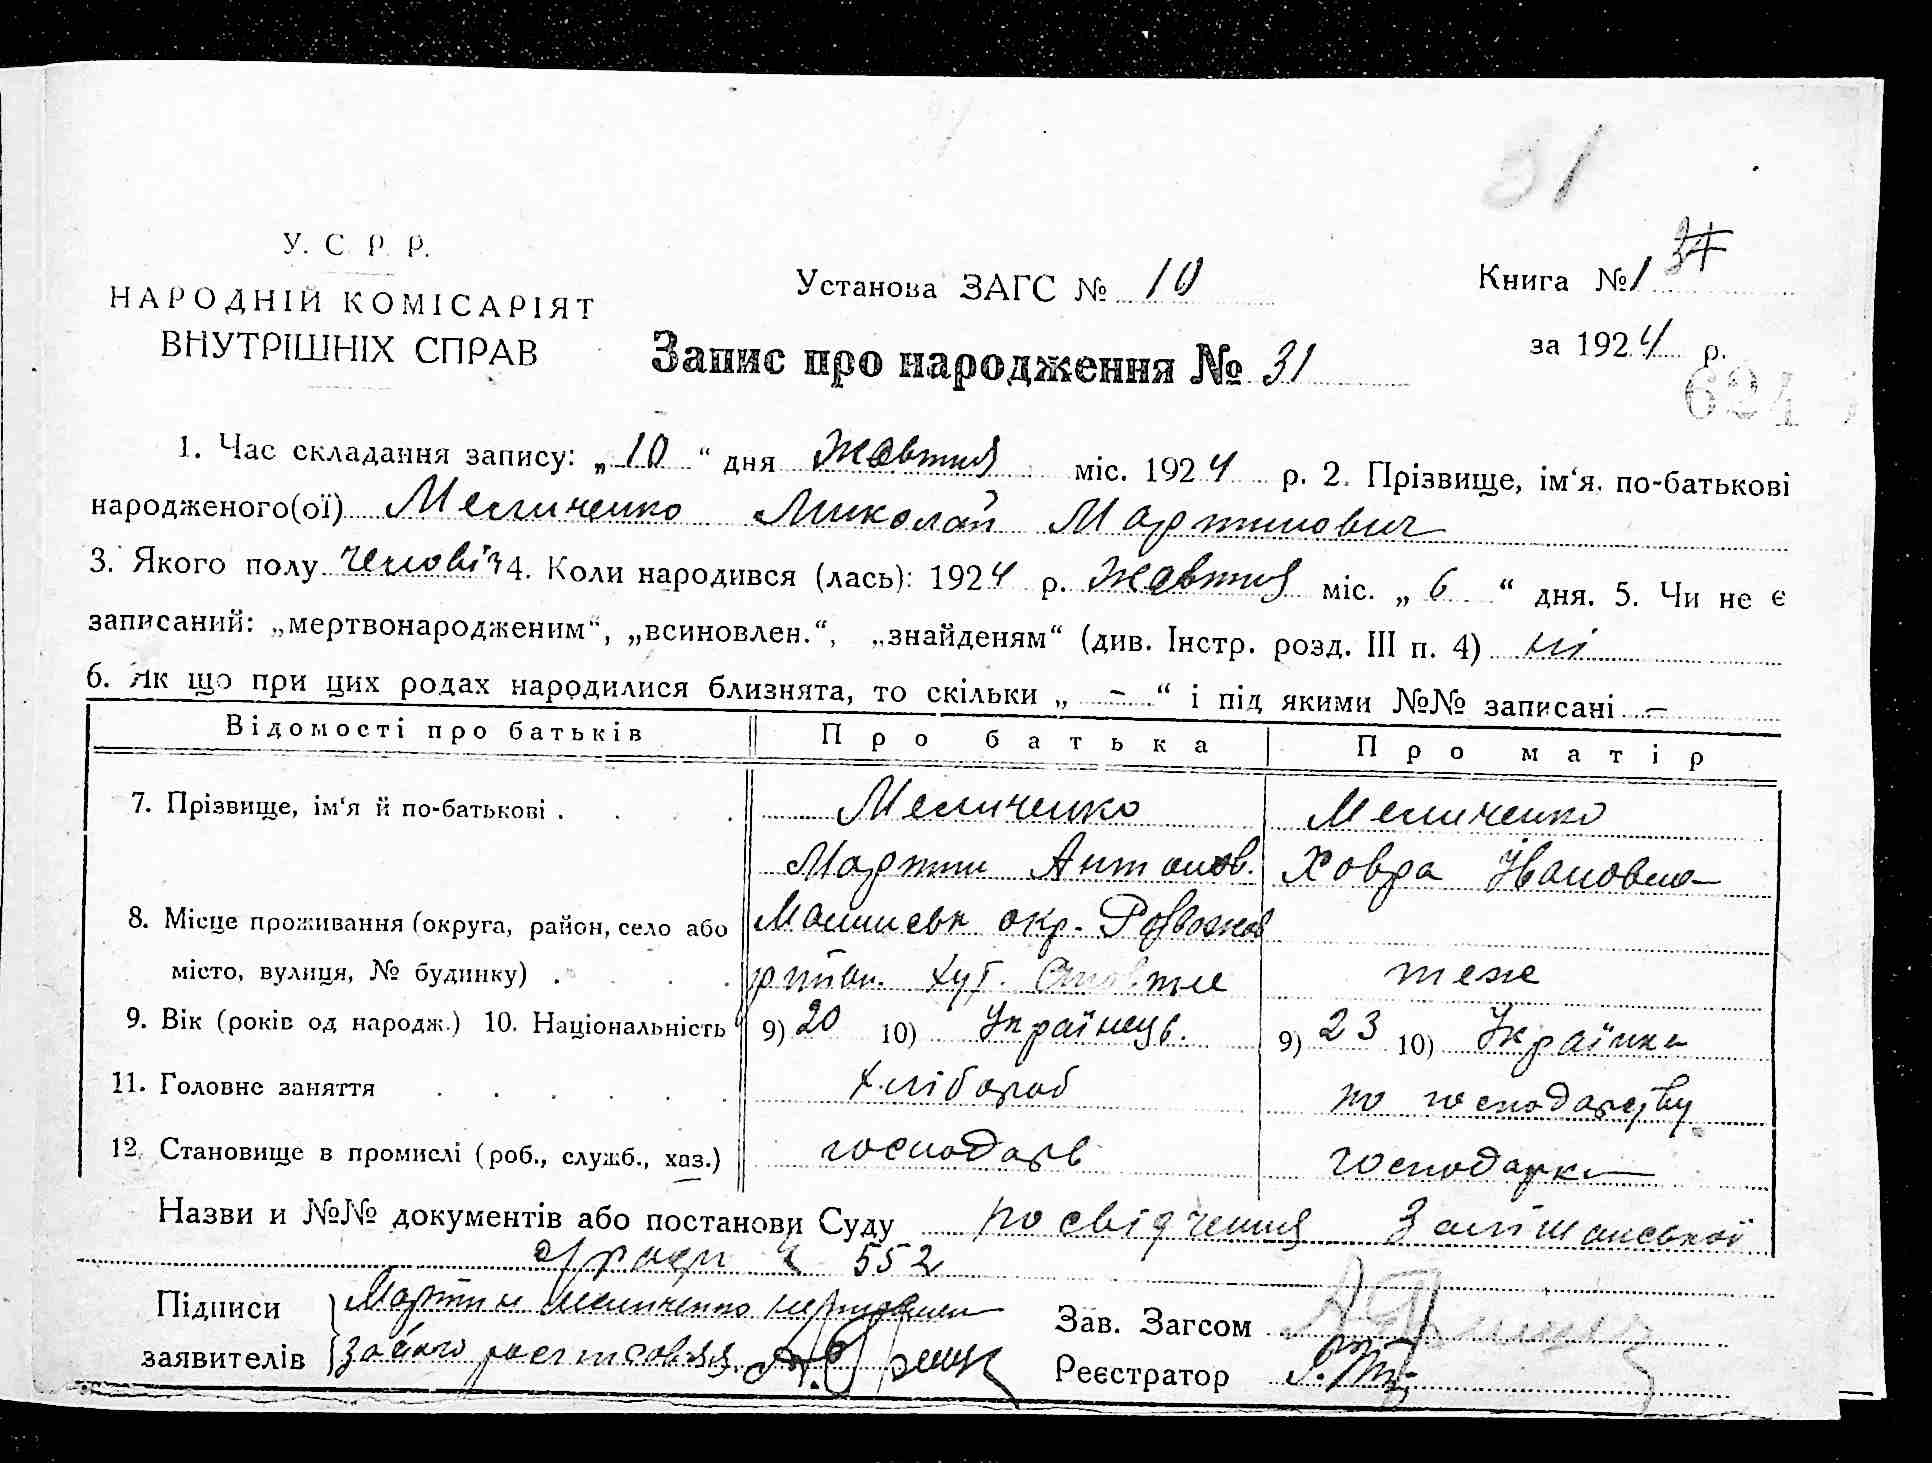 31
У. С. Р. Р.
НАРОДНІЙ КОМІСАРІЯТ
ВНУТРІШНІХ СПРАВ
Установа ЗАГС № 10
Книга № 1 37
за 1924 р.
Запис про народження № 31
624
1. Час складання запису: „10“ дня жовтня міс. 1924 р. 2. Прізвище, ім‘я, по-батькові
народженого(ої) Мельниченко Миколай Мартинович
3. Якого полу чоловіч 4. Коли народився (лась): 1924 р. жовтня міс. „6“ дня. 5. Чи не є
записаний: „мертвонародженим“, „всиновлен.“, „знайденям“ (див. Інстр. розд. III п. 4) ні
6. Як що при цих родах народилися близнята, то скільки „ - “ і під якими №№ записані -
Відомості про батьків Про батька Про матір
7. Прізвище, ім‘я й по-батькові . . . . Меличенко Меличенко
Мартин Антонов. Ховра Івановна
8. Місце проживання (округа, район, село або окр.
місто, вулиця, № будинку) . . . хут. теж
9. Вік (років од народж.) 10. Національність 9) 20 10) Українець. 9) 23 10) Українка
11. Головне заняття . . . . . . хлібороб по господарству
12. Становище в промислі (роб., служб., хаз.) господарь господарка
Назви и №№ документів або постанови Суду посвідчення
552
Підписи Мартин Меличенко
заявителів за його росписовся
Зав. Загсом
Реєстратор